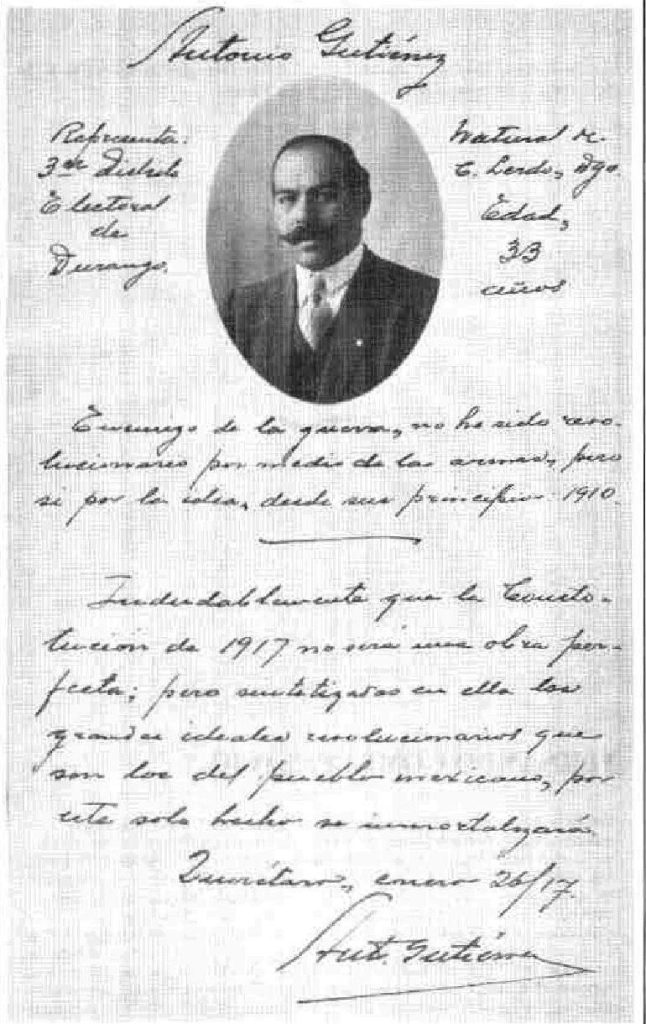 Antonio Gutiérrez
Representa:
3er Distrito
Electoral
de
Durango.
Natural de
C. Lerdo, Dgo.
Edad,
33
años
Enemigo de la guerra, no he sido revo-
lucionario por medio de las armas, pero
si por la idea, desde sus principios 1910.
Indudablemente que la Consti-
tución de 1917 no será una obra per-
fecta; pero sintetizados en ella los
grandes ideales revolucionarios que
son los del pueblo mexicano, por
este solo hecho se inmortalizará.
Querétaro, enero 26/17.
Ant. Gutiérrez